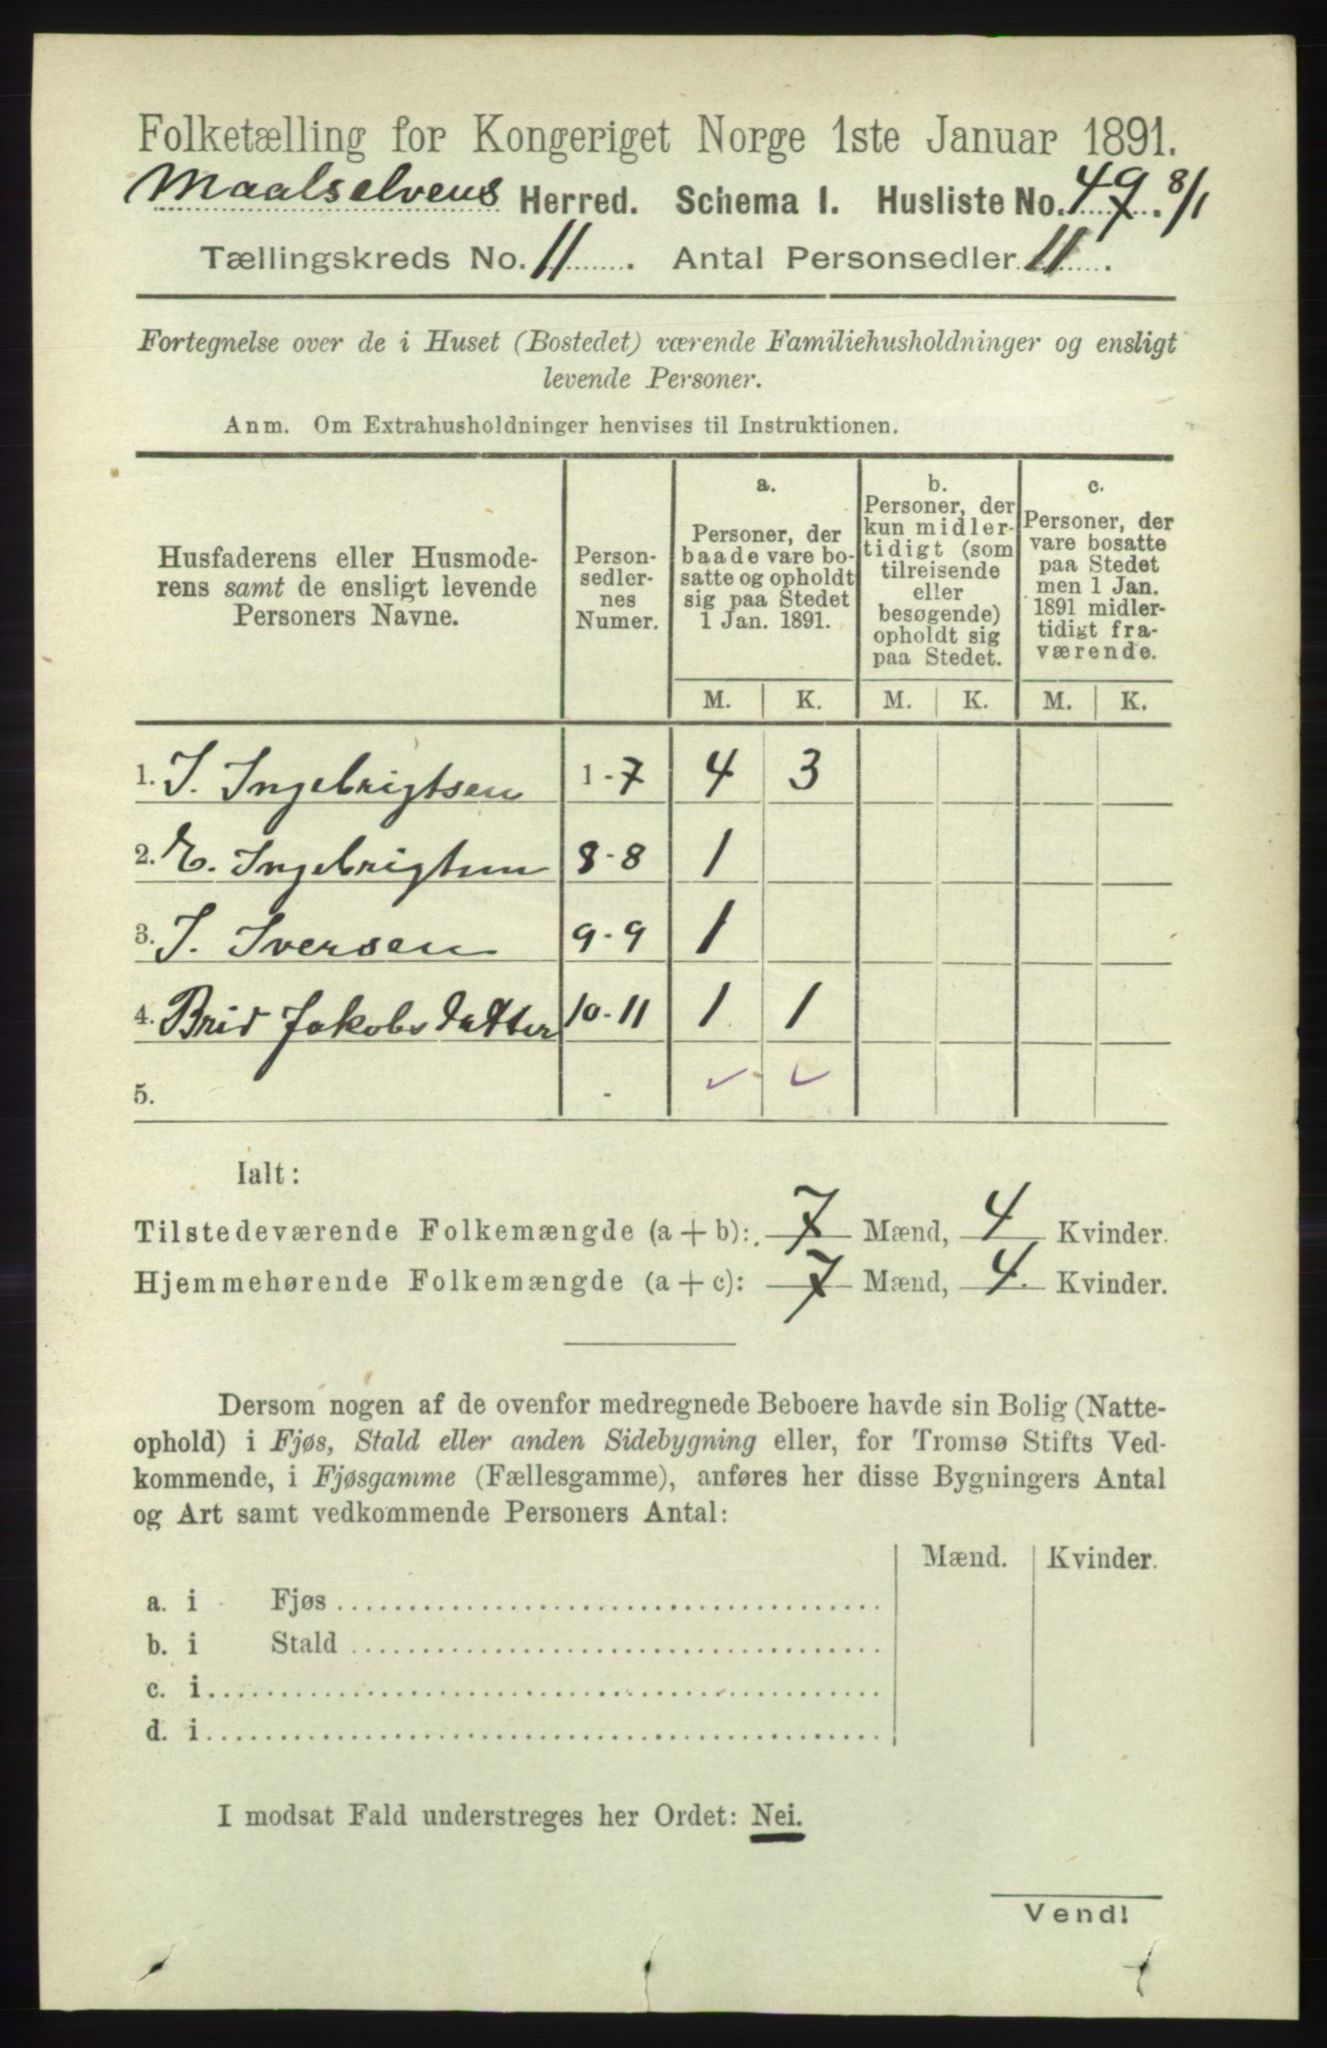 Folketælling for Kongeriget Norge 1ste Januar 1891.
Maalselvens Herred. Schema I. Husliste No. 49. 8/1
Tællingskreds No. 11. Antal Personsedler 11.
Fortegnelse over de i Huset (Bostedet) værende Familiehusholdninger og ensligt
levende Personer.
Anm. Om Extrahusholdninger henvises til Instruktionen.
Husfaderens eller Husmode-
rens samt de ensligt levende
Personers Navne.
Person-
sedler-
nes
Numer.
a.
Personer, der
baade vare bo-
satte og opholdt
sig paa Stedet
1 Jan. 1891.
b.
Personer, der
kun midler-
tidigt (som
tilreisende
eller
besøgende)
opholdt sig
paa Stedet.
c.
Personer, der
vare bosatte
paa Stedet
men 1 Jan.
1891 midler-
tidigt fra-
værende.
M. K. M. K. M. K.
1. I. Ingebrigtsen 1 - 7 4 3
2. E. Ingebrigtsen 8 - 8 1
3. I. Iversen 9 - 9 1
4. Brid Jakobsdatter 10 - 11 1 1
5. -
Ialt:
Tilstedeværende Folkemængde (a + b): 7 Mænd, 4 Kvinder.
Hjemmehørende Folkemængde (a + c): 7 Mænd, 4. Kvinder.
Dersom nogen af de ovenfor medregnede Beboere havde sin Bolig (Natte-
ophold) i Fjøs, Stald eller anden Sidebygning eller, for Tromsø Stifts Ved-
kommende, i Fjøsgamme (Fællesgamme), anføres her disse Bygningers Antal
og Art samt vedkommende Personers Antal:
Mænd. Kvinder.
a. i Fjøs
b. i Stald
c. i
d. i
I modsat Fald understreges her Ordet: Nei.
Vend!